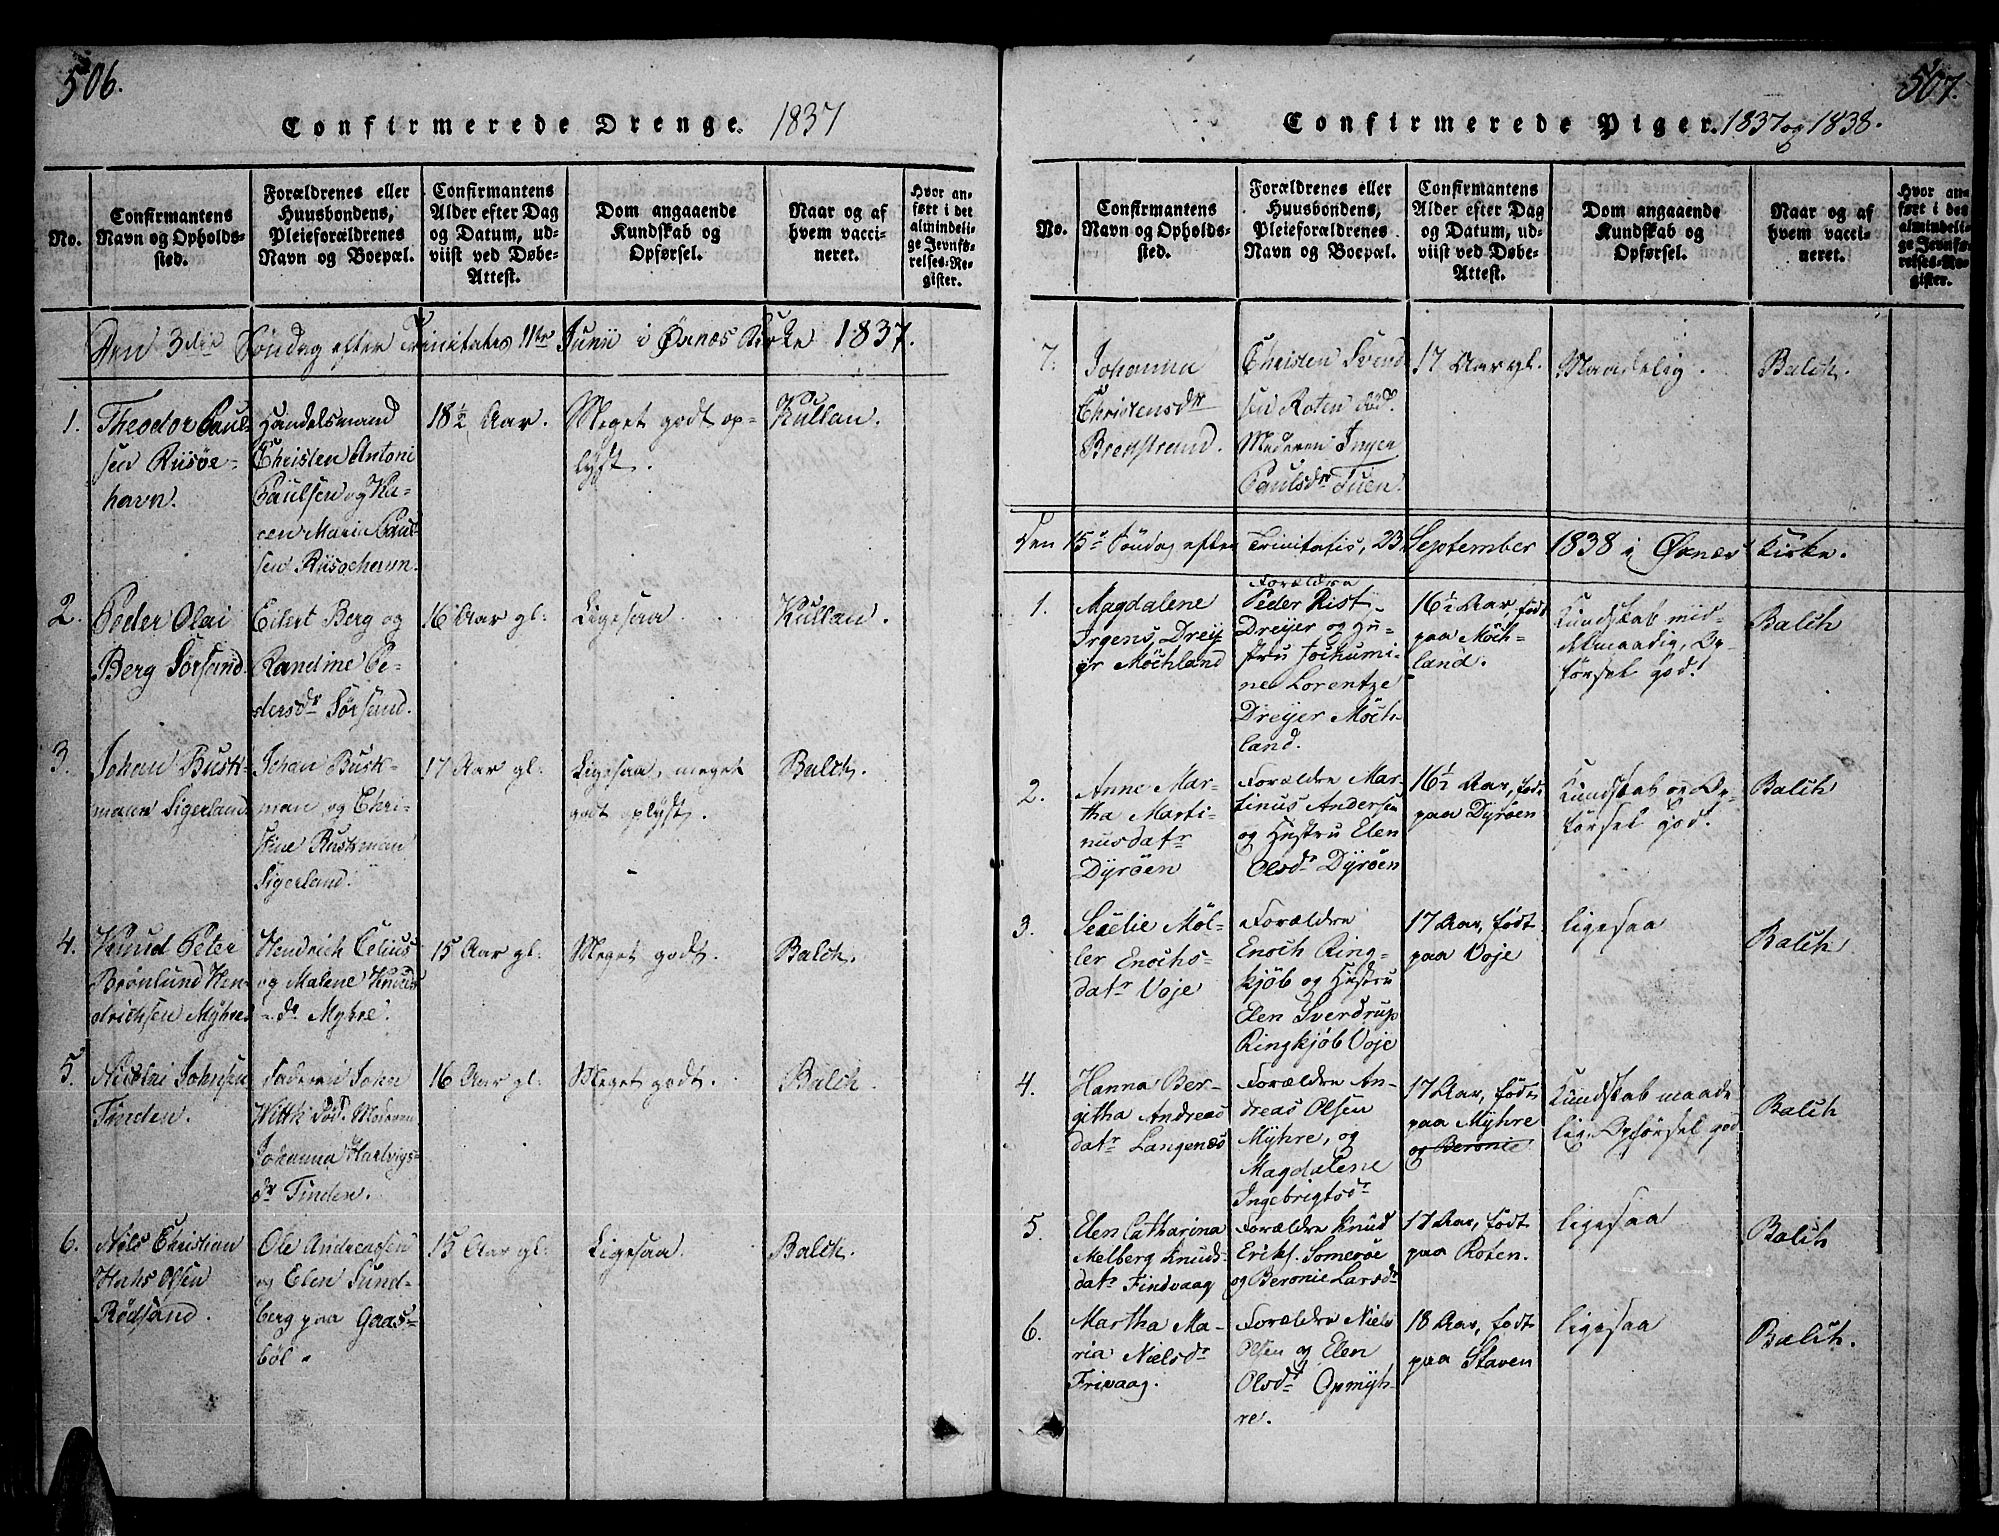 506.
Confirmerede Drenge. 1837
No.
Confirmantens
Navn og Opholds-
sted.
Forældrenes eller
Huusbondens,
Pleieforældrenes
Navn og Boepæl.
Confirmantens
Alder efter Dag
og Datum, ud-
viist ved Døbe-
Attest.
Dom angaaende
Kundskab og
Opførsel.
Naar og af
hvem vacci-
neret.
Hvor an-
ført i det
almindeli-
ge Jevnfø-
relses-Re-
gister.
Den 3die Söndag efter Trinitatis 11te Junii i Øxnæs Kirke 1837.
1.
Theodor Paul-
sen Riisøe-
havn.
Handelsmand
Christen Antoni
Paulsen og Ka-
ren Maria Paul-
sen Riisøehavn.
18½ Aar.
Meget godt op-
lyst.
Kullan.
2.
Peder Olai
Berg Sörsand
Eilert Berg og
Randine Pe-
dersdr Sörsand.
16 Aar gl:
Ligesaa
Kullan.
3.
Johan Busk-
mann Tigerland
Johan Busk-
man og Chri-
stine Buskman
Tigerland.
17 Aar gl:
Ligesaa, meget
godt oplyst.
Balch.
4.
Knud Peter
Brönlund Hen-
drichsen Myhre
Hendrich Celius
og Malene Knuds
dr Myhre.
15 Aar gl:
Meget godt.
Balch.
5.
Nicolai Johnsen
Tinden.
Faderen John
Witth död. Moderen
Johanna Hartvigs-
dr Tinden.
16 Aar gl:
Meget godt.
Balch.
6.
Niels Christian
Hahs Olsen
Rödsand.
Ole Andreassen
og Elen Sund-
berg paa Gaas-
böl.
15 Aar gl:
Ligesaa.
Balch.
507.
Confirmerede Piger. 1837 og 1838.
No.
Confirmantens
Navn og Opholds-
sted.
Forældrenes eller
Huusbondens,
Pleieforældrenes
Navn og Boepæl.
Confirmantens
Alder efter Dag
og Datum, ud-
viist ved Døbe-
Attest.
Dom angaaende
Kundskab og
Opførsel.
Naar og af
hvem vacci-
neret.
Hvor an-
ført i det
almindeli-
ge Jevnfø-
relses-Re-
gister.
7.
Johanna
Christensdr
Breistrand.
Christen Svend
sen Roten död.
Moderen Inger
Paulsdr Tuen.
17 Aar gl.
Maadelig.
Balch.
Den 15de Söndag efter Trinitatis, 23 September 1838 i Øxnæs Kirke.
1.
Magdalene
Irgens Drey
er Möchland
Forældre
Peder Rist
Dreyer og Hu-
stru Jochumi-
ne Lorentze
Dreyer Möch-
land.
16½ Aar, födt
paa Möch-
land.
Kundskab mid-
delmaadig, Op-
försel god.
Balch
2.
Anne Mar-
tha Marti-
nusdatr
Dyröen
Forældre Mar-
tinus Andersen
og Hustru Elen
Olsdr Dyröen
16½ Aar, födt
paa Dyröen
Kundskab og Op-
försel god.
Balch
3.
Möl-
ler Enochs-
datr Voje
Forældre
Enoch Ring-
kjöb og Hustru
Elen Sverdrup
Ringkjöb Voje
17 Aar, födt
paa Voje
ligesaa
Balch
4.
Hanna Ber-
githa Andreas
datr Langenæs
Forældre An-
dreas Olsen
Myhre, og
Magdalene
Ingebrigtsdr
17 Aar, födt
paa Myhre
og Beronie
Kundskab maade
lig. Opförsel god
Balch
5.
Elen Catharina
Melberg Knuds-
datr Findvaag
Forældre Knud
Eriks. Someröe
og Beronie Larsdr
17 Aar, födt
paa Roten.
ligesaa
Balch
6.
Martha Ma-
ria Nielsdr
Frivaag.
Forældre Niels
Olsen og Elen
Olsdr Opmyh-
re.
18 Aar, födt
paa Staven
ligesaa
Balch.